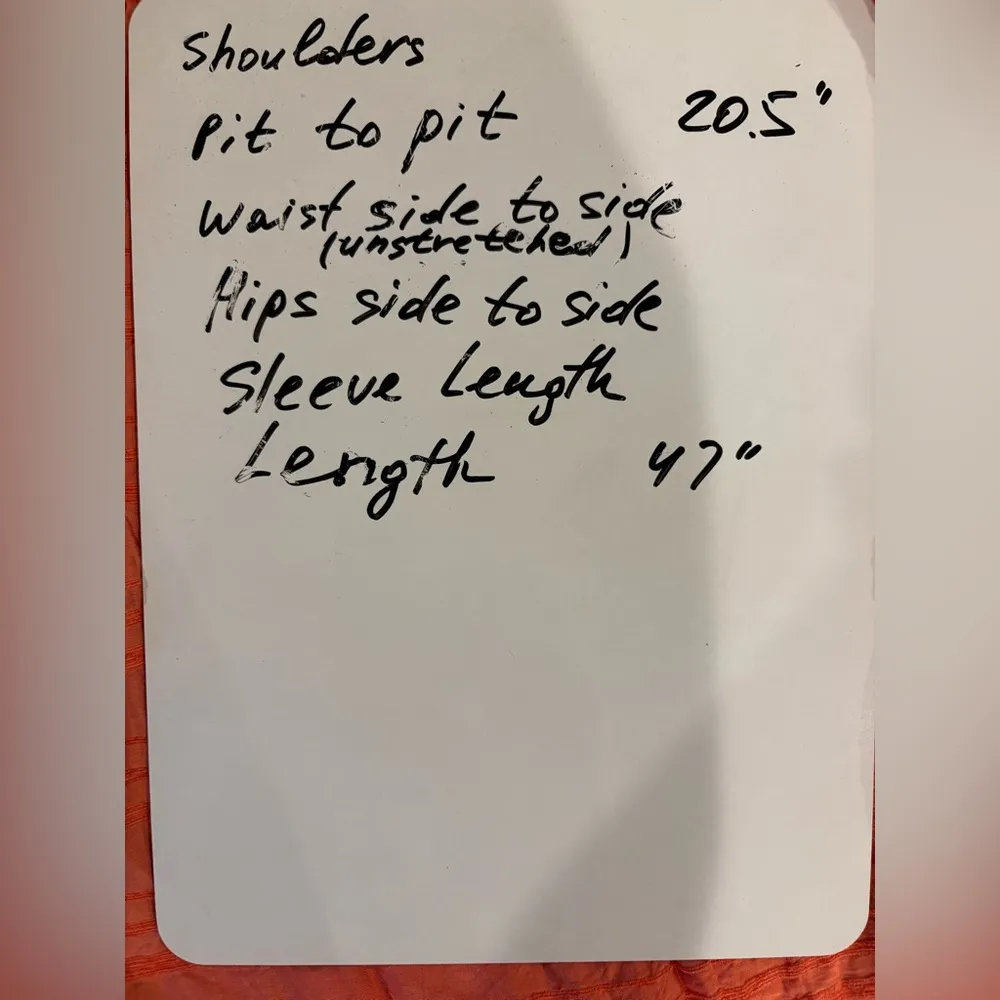 Shoulders
Pit to pit 20.5"
Waist side to side
(unstretched)
Hips side to side
Sleeve Length
Length 47"